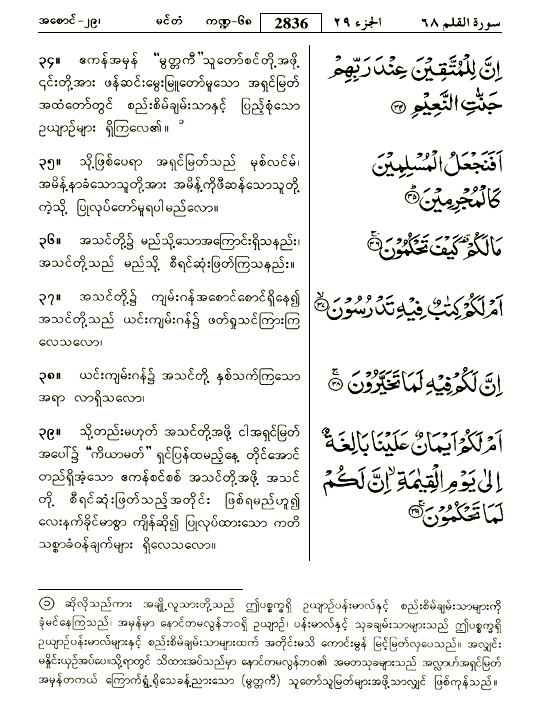 အစောင်-၂၉၊ မင်တံ ကဏ္ဍ-၆၈ 2836 الجزء ٢٩ سورة القلم ٦٨
၃၄။ ဧကန်အမှန် “မွတ္တကီ”သူတော်စင်တို့အဖို့
၎င်းတို့အား ဖန်ဆင်းမွေးမြူတော်မူသော အရှင်မြတ်
အထံတော်တွင် စည်းစိမ်ချမ်းသာနှင့် ပြည့်စုံသော
ဥယျာဉ်များ ရှိကြလေ၏။
اِنَّ لِلْمُتَّقِيْنَ عِنْدَ رَبِّهِمْ
جَنّٰتِ النَّعِيْمِ ﴿٣٤﴾
၃၅။ သို့ဖြစ်ပေရာ အရှင်မြတ်သည် မုစ်လင်မ်၊
အမိန့်နာခံသောသူတို့အား အမိန့်ကိုဖီဆန်သောသူတို့
ကဲ့သို့ ပြုလုပ်တော်မူရပါမည်လော။
اَفَنَجْعَلُ الْمُسْلِمِيْنَ
كَالْمُجْرِمِيْنَ ﴿٣٥﴾
၃၆။ အသင်တို့၌ မည်သို့သောအကြောင်းရှိသနည်း၊
အသင်တို့သည် မည်သို့ စီရင်ဆုံးဖြတ်ကြသနည်း။
مَا لَكُمْ كَيْفَ تَحْكُمُوْنَ ﴿٣٦﴾
၃၇။ အသင်တို့၌ ကျမ်းဂန်အစောင်စောင်ရှိနေ၍
အသင်တို့သည် ယင်းကျမ်းဂန်၌ ဖတ်ရှုသင်ကြားကြ
လေသလော၊
اَمْ لَكُمْ كِتٰبٌ فِيْهِ تَدْرُسُوْنَ ﴿٣٧﴾
၃၈။ ယင်းကျမ်းဂန်၌ အသင်တို့ နှစ်သက်ကြသော
အရာ လာရှိသလော၊
اِنَّ لَكُمْ فِيْهِ لَمَا تَخَيَّرُوْنَ ﴿٣٨﴾
၃၉။ သို့တည်းမဟုတ် အသင်တို့အဖို့ ငါအရှင်မြတ်
အပေါ်၌ “ကိယာမတ်” ရှင်ပြန်ထမည့်နေ့ တိုင်အောင်
တည်ရှိအံ့သော ဧကန်စင်စစ် အသင်တို့အဖို့ အသင်
တို့ စီရင်ဆုံးဖြတ်သည့်အတိုင်း ဖြစ်ရမည်ဟူ၍
လေးနက်ခိုင်မာစွာ ကျိန်ဆို၍ ပြုလုပ်ထားသော ကတိ
သစ္စာခံဝန်ချက်များ ရှိလေသလော။
اَمْ لَكُمْ اَيْمَانٌ عَلَيْنَا بَالِغَةٌ
اِلٰى يَوْمِ الْقِيٰمَةِ اِنَّ لَكُمْ
لَمَا تَحْكُمُوْنَ ﴿٣٩﴾
၁ ဆိုလိုသည်ကား အချို့လူသားတို့သည် ဤပစ္စက္ခရှိ ဥယျာဉ်ပန်းမာလ်နှင့် စည်းစိမ်ချမ်းသာများကို
ခုံမင်နေကြသည်၊ အမှန်မှာ နောင်တမလွန်ဘဝရှိ ဥယျာဉ်၊ ပန်းမာလ်နှင့် သုခချမ်းသာများသည် ဤပစ္စက္ခရှိ
ဥယျာဉ်ပန်းမာလ်များနှင့် စည်းစိမ်ချမ်းသာများထက် အတိုင်းမသိ ကောင်းမွန် မြင့်မြတ်လှပေသည်။ အလျှင်း
မနှိုင်းယှဉ်အပ်ပေ။သို့ရာတွင် သိထားအပ်သည်မှာ နောင်တမလွန်ဘဝ၏ အမတသုခများသည် အလ္လာဟ်အရှင်မြတ်
အမှန်တကယ် ကြောက်ရွံ့ရိုသေခန့်ညားသော (မွတ္တကီ) သူတော်သူမြတ်များအဖို့သာလျှင် ဖြစ်ကုန်သည်။